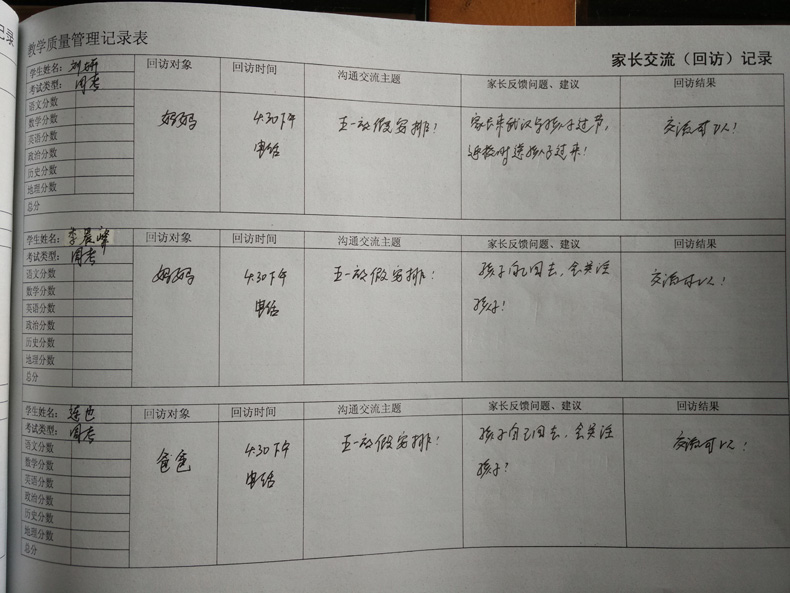 记录
教学质量管理记录表
家长交流（回访）记录
学生姓名：刘妍
考试类型：周考
语文分数
数学分数
英语分数
政治分数
历史分数
地理分数
总分
回访对象
妈妈
回访时间
4.30下午
电话
沟通交流主题
五一放假安排！
家长反馈问题、建议
家长来武汉与孩子过节，
返校时送孩子过来！
回访结果
交流可以！
学生姓名：李晨峰
考试类型：周考
语文分数
数学分数
英语分数
政治分数
历史分数
地理分数
总分
回访对象
妈妈
回访时间
4.30下午
电话
沟通交流主题
五一放假安排！
家长反馈问题、建议
孩子自己回去，会关注
孩子！
回访结果
交流可以！
学生姓名：
考试类型：周考
语文分数
数学分数
英语分数
政治分数
历史分数
地理分数
总分
回访对象
爸爸
回访时间
4.30下午
电话
沟通交流主题
五一放假安排！
家长反馈问题、建议
孩子自己回去，会关注
孩子？
回访结果
交流可以！